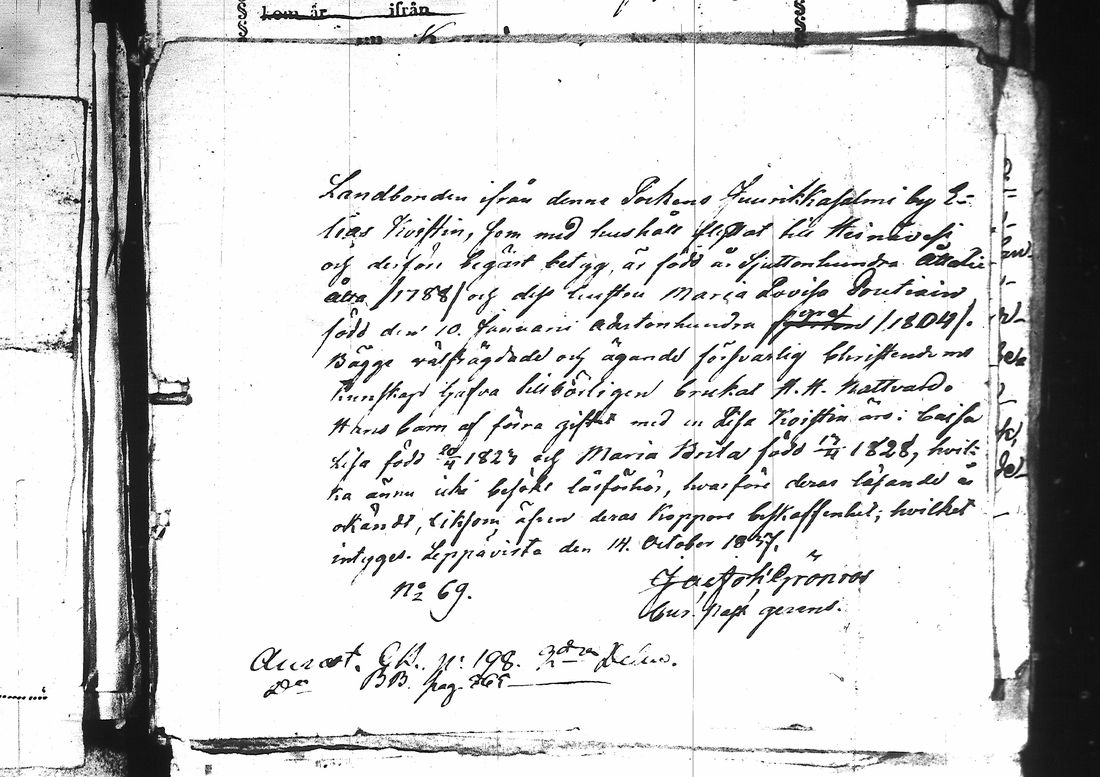 kom år ifrån
Landbonden ifrån denne Sockens Juurikkasalmi by E-
lias Koistin, som med hushåll flyttat till Heinävesi
och derföre begärt betyg, är född år Sjuttonhundra Åttatio
åtta /1788/ och dess hustru Maria Lovisa Soutiain
född den 10. Januarii adertonhundra fyra /1804/.
Bägge välfrägdade och ägande försvarlig Christendoms
kunskap hafva tillbörligen brukat H. H. Nattvard.
Hans barn af förra giftet med en Lisa Koistin äro: Caisa
Lisa född 20/4 1823 och Maria Brita född 17/4 1828, hvil-
ka ännu icke besökt läsförhör, hvarföre deras läsande är
okändt, liksom äfven deras Koppors beskaffenhet; hvilket
intygas. Leppävirta den 14. October 1837.
No 69. Jac. Joh. Grönroos
Cur. Past. gerens.
G.B. p: 198. 2dra Delen.
BB. pag. 265